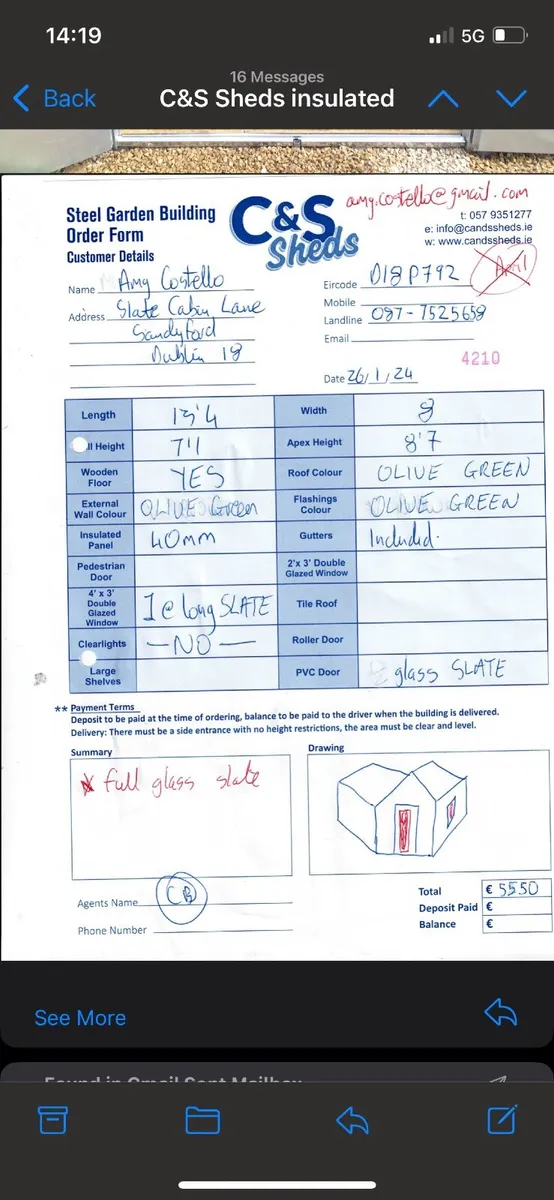 14:19
5G
16 Messages
Back
C&S Sheds insulated
Steel Garden Building
Order Form
Customer Details
C&S
Sheds
amy.costello@gmail.com
t: 057 9351277
e: info@candssheds.ie
w: www.candssheds.ie
April
Name Amy Costello
Address Slate Cabin Lane
Sandyford
Dublin 18
Eircode D18 P792
Mobile
Landline 087-7525658
Email
4210
Date 26/1/24
Length 13'4 Width 8
ll Height 7'1 Apex Height 8'7
Wooden Floor YES Roof Colour OLIVE GREEN
External Wall Colour OLIVE Green Flashings Colour OLIVE GREEN
Insulated Panel 40mm Gutters Included.
Pedestrian Door 2'x 3' Double Glazed Window
4' x 3' Double Glazed Window 1 @ long SLATE Tile Roof
Clearlights -NO- Roller Door
Large Shelves PVC Door glass SLATE
** Payment Terms
Deposit to be paid at the time of ordering, balance to be paid to the driver when the building is delivered.
Delivery: There must be a side entrance with no height restrictions, the area must be clear and level.
Summary
Drawing
* full glass slate
Agents Name CB
Phone Number
Total € 5550
Deposit Paid €
Balance €
See More
Found in Gmail Sent Mailbox